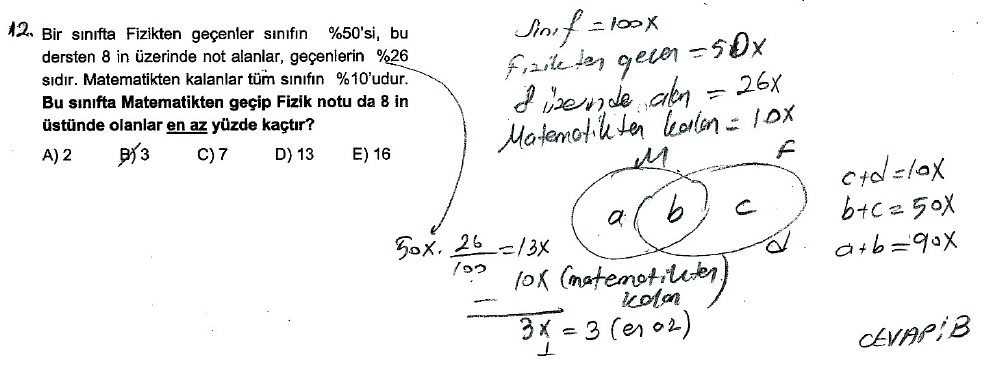 12. Bir sınıfta Fizikten geçenler sınıfın %50'si, bu
dersten 8 in üzerinde not alanlar, geçenlerin %26
sıdır. Matematikten kalanlar tüm sınıfın %10'udur.
Bu sınıfta Matematikten geçip Fizik notu da 8 in
üstünde olanlar en az yüzde kaçtır?
A) 2 B) 3 C) 7 D) 13 E) 16
Sınıf = 100X
Fizikten geçen = 50X
8 üzerinde alan = 26X
Matematikten kalan = 10X
M F
a b c
d
c+d=10X
b+c=50X
a+b=90X
50X. 26/100 = 13X
10X (matematikten
kalan)
3X = 3 (en az)
1
CEVAP: B